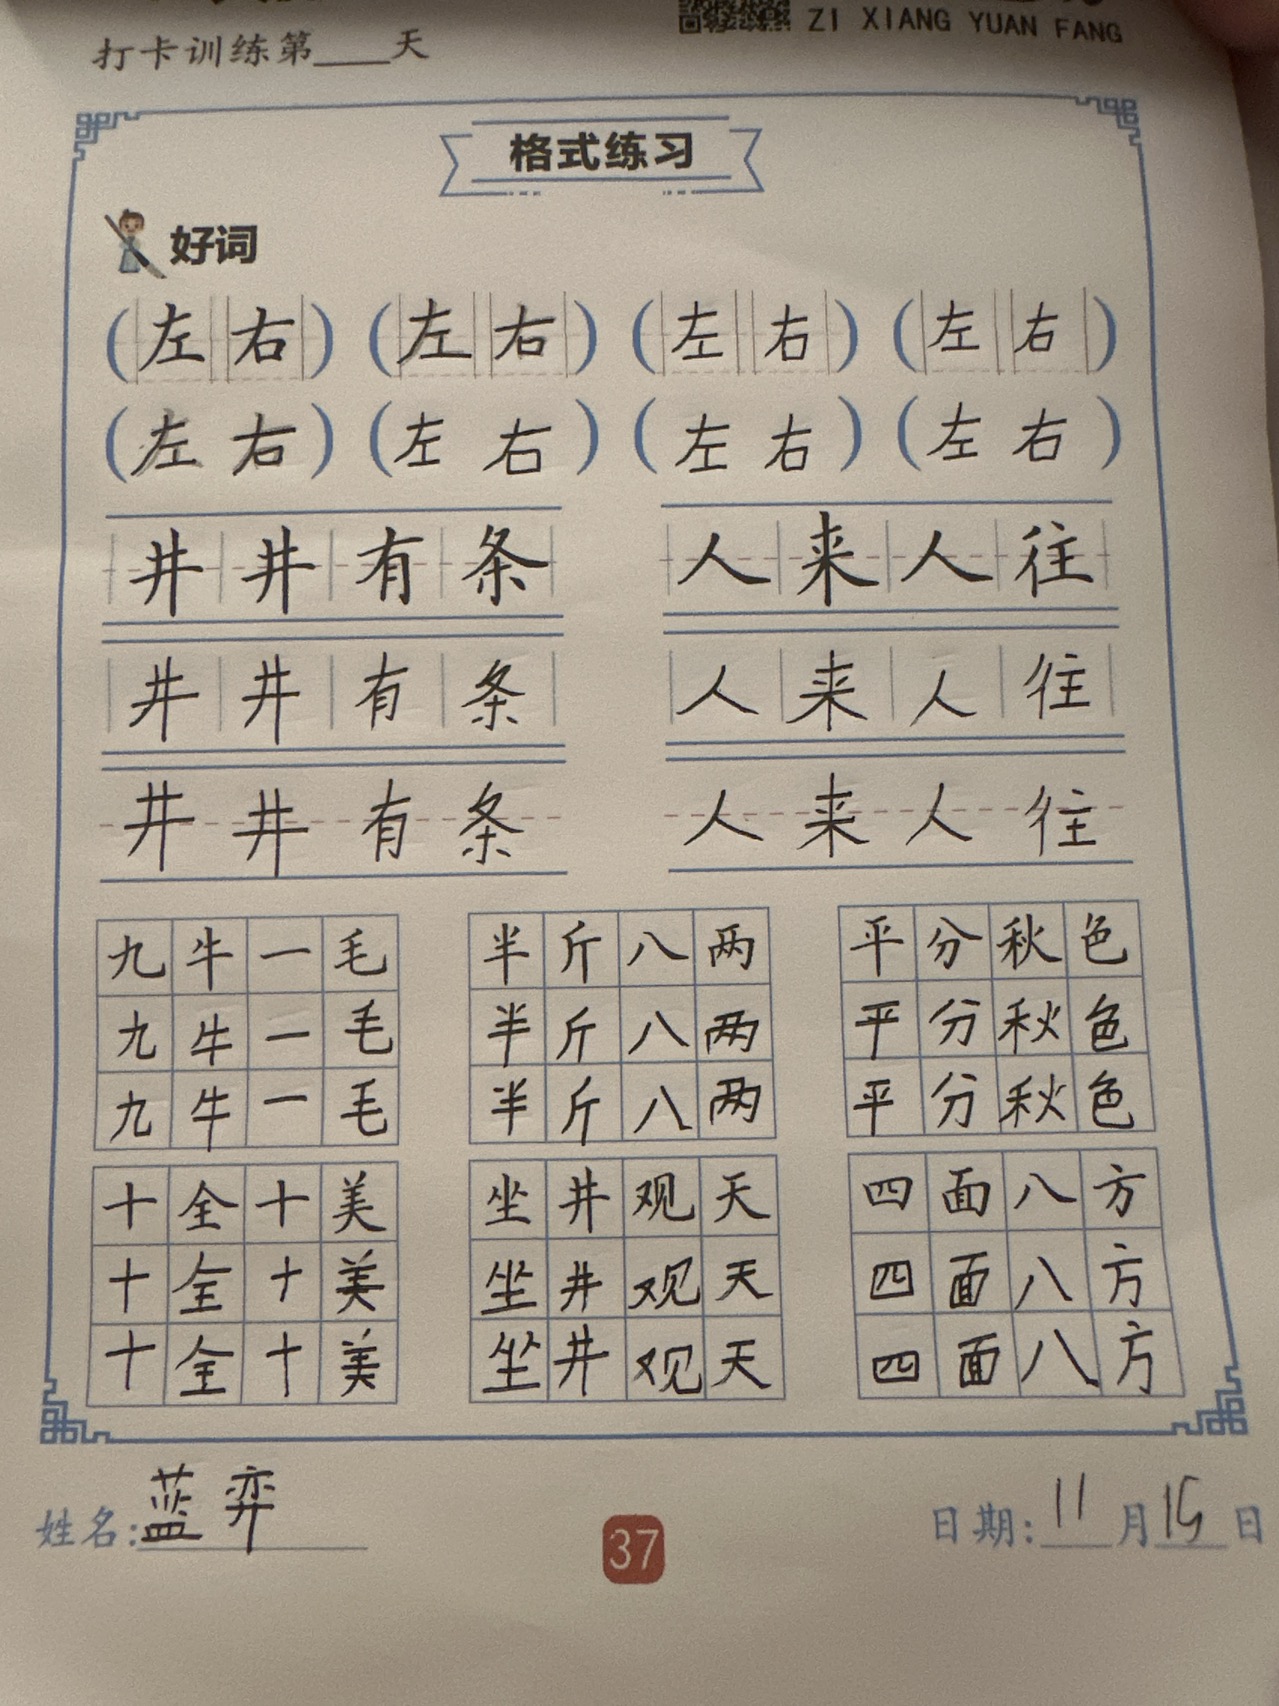 ZI XIANG YUAN FANG
打卡训练第____天
格式练习
好词
(左右) (左右) (左右) (左右)
(左右) (左右) (左右) (左右)
井井有条 人来人往
井井有条 人来人往
井井有条 人来人往
九牛一毛 半斤八两 平分秋色
九牛一毛 半斤八两 平分秋色
九牛一毛 半斤八两 平分秋色
十全十美 坐井观天 四面八方
十全十美 坐井观天 四面八方
十全十美 坐井观天 四面八方
姓名:蓝弈 日期:11月15日
37